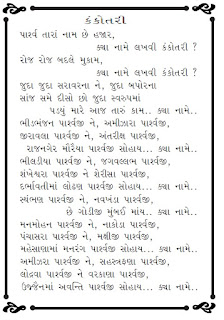 કંકોતરી
પાર્શ્વ તારાં નામ છે હજાર,
ક્યા નામે લખવી કંકોતરી ?
રોજ રોજ બદલે મુકામ,
ક્યા નામે લખવી કંકોતરી ?
જુદા જુદા સરાવરના ને, જુદા બપોરના
સાંજ સમે દીસો છો જુદા સ્વરુપમાં
પડ્યું મારે આજ તારું કામ.. ક્યા નામે..
ભીડભંજન પાર્શ્વજી ને, અમીઝારા પાર્શ્વજી,
જીરાવલા પાર્શ્વજી ને, અંતરીક્ષ પાર્શ્વજી,
રાજનગરે મૌરૈયા પાર્શ્વજી સોહાય... ક્યા નામે..
ભીલડીયા પાર્શ્વજી ને, જગવલ્લભ પાર્શ્વજી,
શંખેશ્વરા પાર્શ્વજી ને શેરીસા પાર્શ્વજી,
દર્ભાવતીમાં લોઢણ પાર્શ્વજી સોહાય... ક્યા નામે..
સ્થંભણ પાર્શ્વજી ને, નવખંડા પાર્શ્વજી,
છે ગોડીજી મુંબઈ માંય.. ક્યા નામે..
મનમોહન પાર્શ્વજી ને, નાકોડા પાર્શ્વજી,
પંચાસરા પાર્શ્વજી ને, મક્ષીજી પાર્શ્વજી,
મહેસાણામાં મનરંગ પાર્શ્વજી સોહાય... ક્યા નામે..
અમીઝરા પાર્શ્વજી ને, સહસ્ત્રફણા પાર્શ્વજી,
લોઢવા પાર્શ્વજી ને વરકાણા પાર્શ્વજી,
ઉજ્જૈનમાં અવન્તિ પાર્શ્વજી સોહાય... ક્યા નામે..